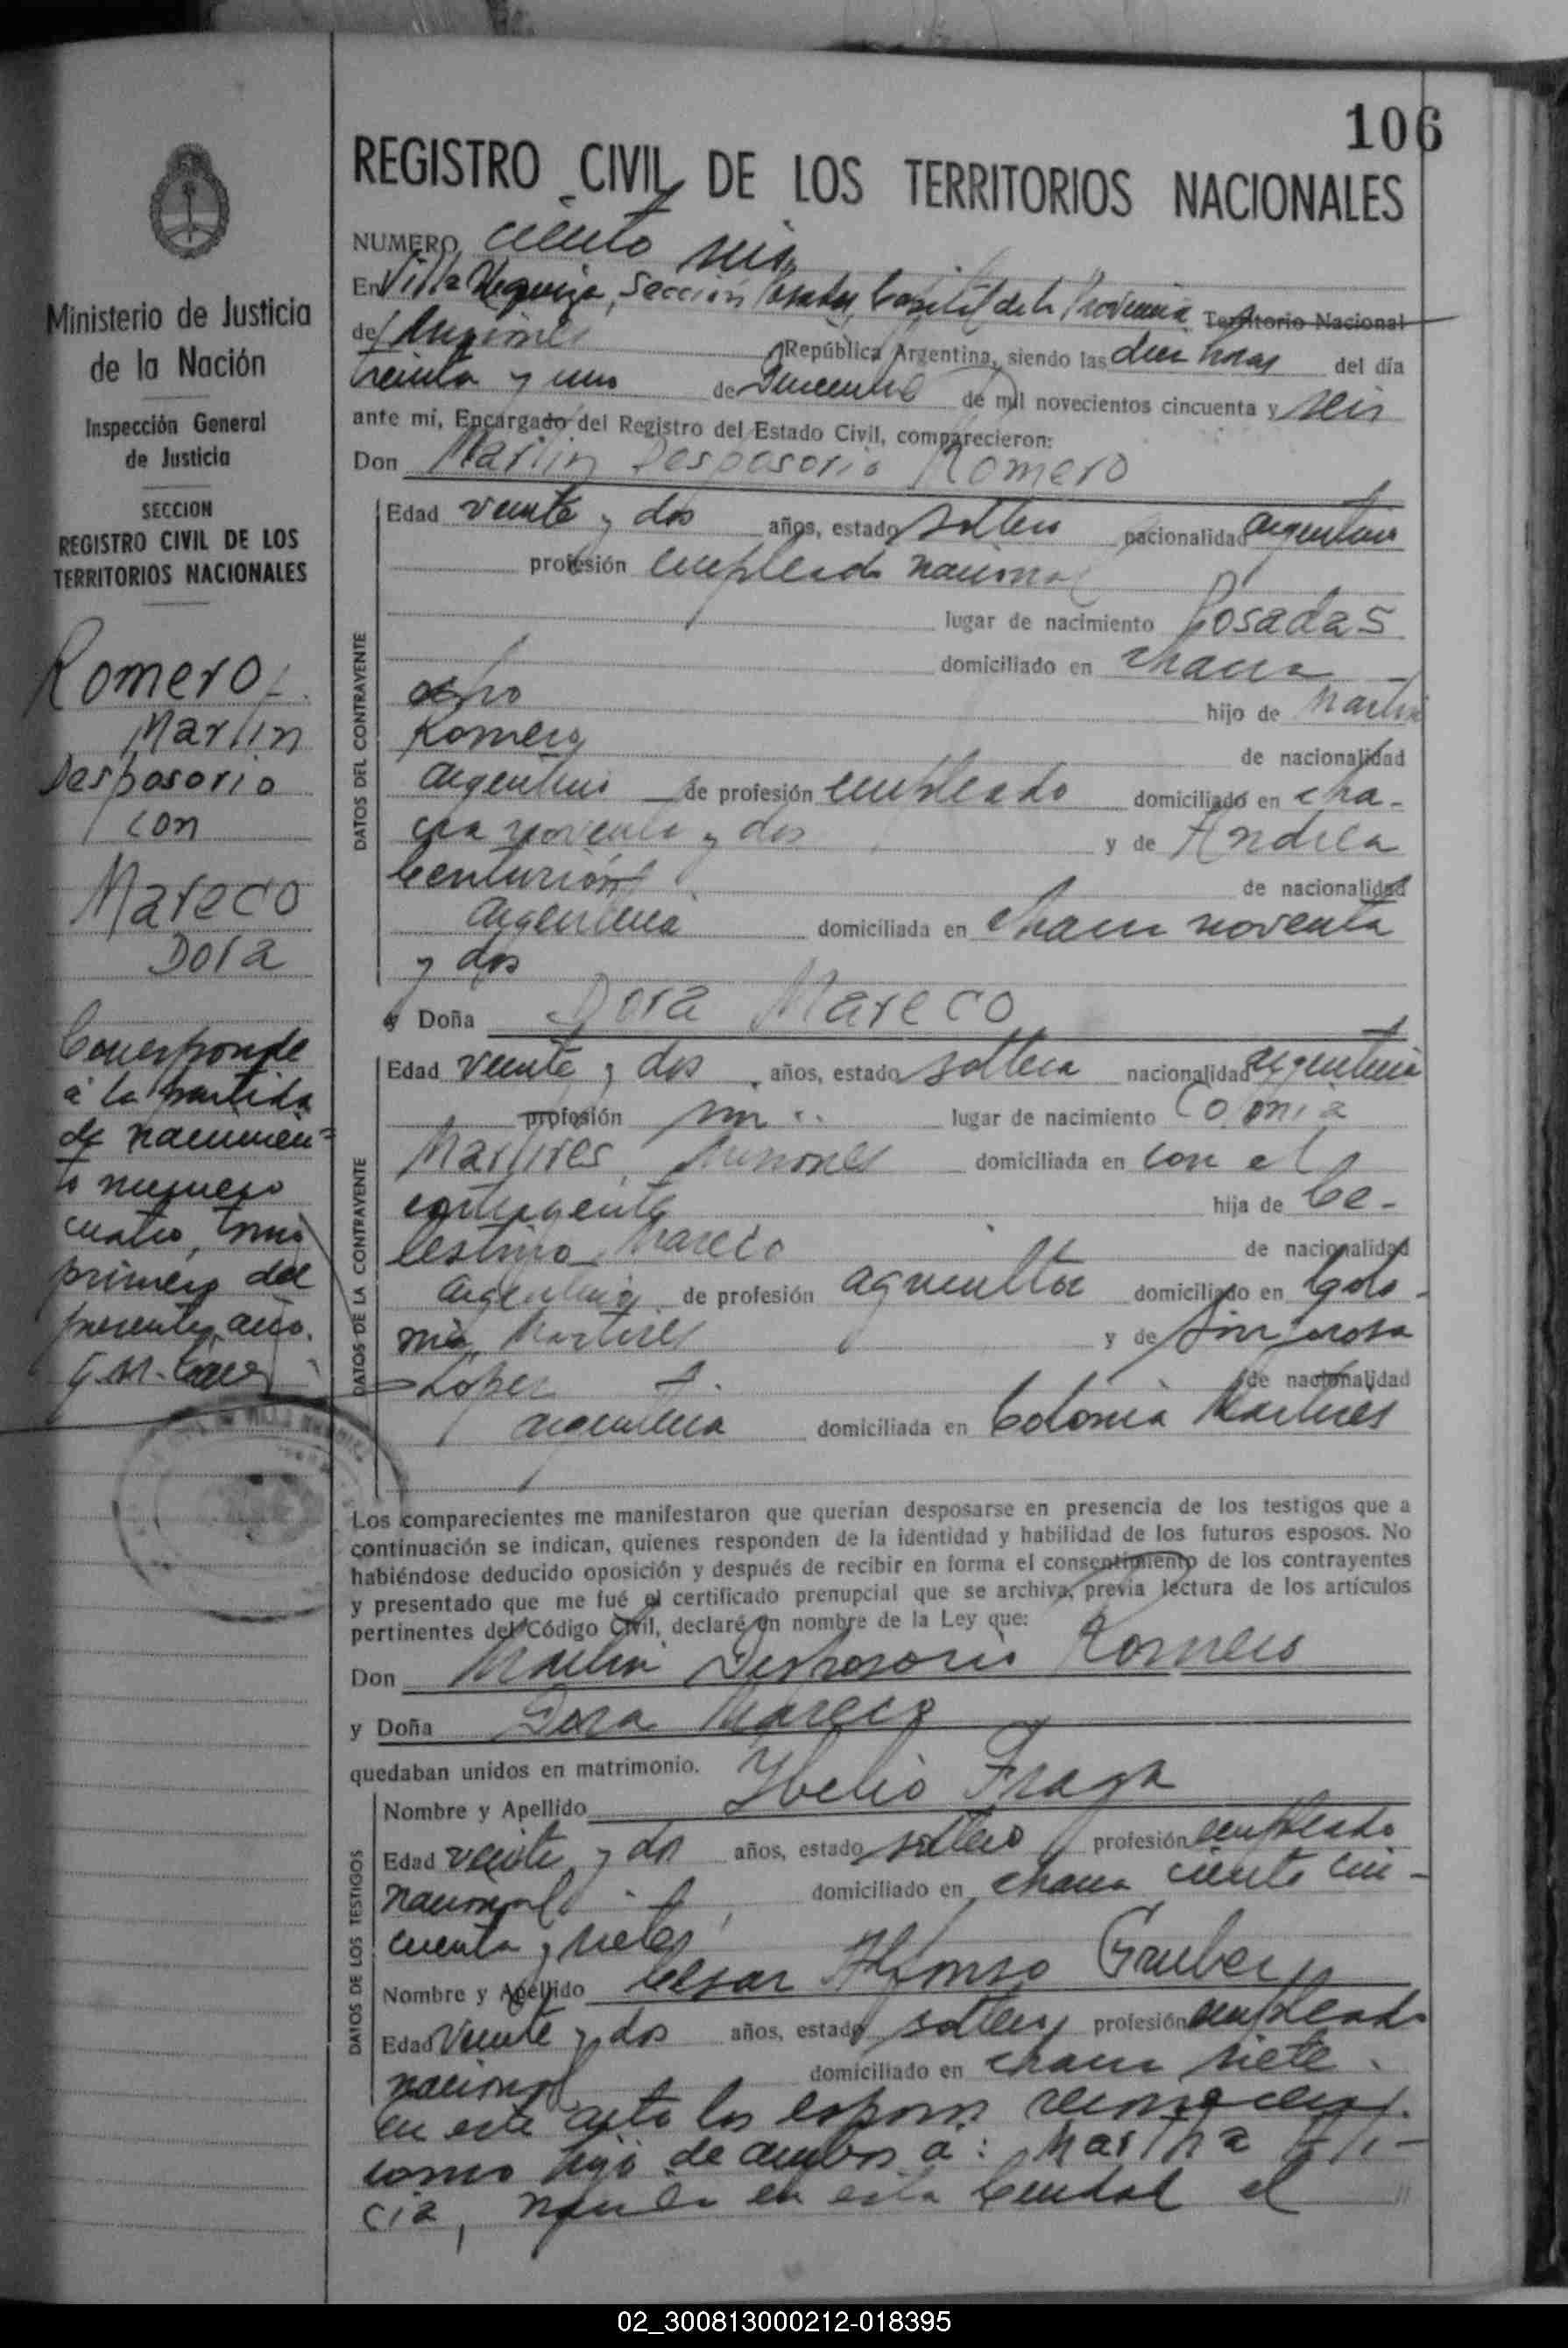 106
REGISTRO CIVIL DE LOS TERRITORIOS NACIONALES
NUMERO ciento seis
En Villa Urquiza, Sección Posadas, Capital de la Provincia Territorio Nacional
de Misiones República Argentina, siendo las diez horas del día
treinta y uno de Diciembre de mil novecientos cincuenta y seis
ante mí, Encargado del Registro del Estado Civil, comparecieron:
Don Martin Desposorio Romero
DATOS DEL CONTRAYENTE
Edad veinte y dos años, estado soltero nacionalidad argentino
profesión empleado nacional
lugar de nacimiento Posadas
domiciliado en chacra
ocho hijo de Martin
Romero de nacionalidad
argentino de profesión empleado domiciliado en cha-
cra noventa y dos y de Andrea
Centurión de nacionalidad
argentina domiciliada en chacra noventa
y dos
y Doña Dora Mareco
DATOS DE LA CONTRAYENTE
Edad veinte y dos años, estado soltera nacionalidad argentina
profesión sin lugar de nacimiento Colonia
Martires, Misiones domiciliada en con el
contrayente hija de Ce-
lestino Mareco de nacionalidad
argentino de profesión agricultor domiciliado en Colo-
nia Martires y de Sinforosa
Lopez de nacionalidad
argentina domiciliada en Colonia Martires
Los comparecientes me manifestaron que querían desposarse en presencia de los testigos que a
continuación se indican, quienes responden de la identidad y habilidad de los futuros esposos. No
habiéndose deducido oposición y después de recibir en forma el consentimiento de los contrayentes
y presentado que me fué el certificado prenupcial que se archiva, previa lectura de los artículos
pertinentes del Código Civil, declaré en nombre de la Ley que:
Don Martin Desposorio Romero
y Doña Dora Mareco
quedaban unidos en matrimonio.
DATOS DE LOS TESTIGOS
Nombre y Apellido Ibelio Fraga
Edad veinte y dos años, estado soltero profesión empleado
nacional domiciliado en chacra ciento cin-
cuenta y siete
Nombre y Apellido Cesar Alfonso Gruber
Edad veinte y dos años, estado soltero profesión empleado
nacional domiciliado en chacra siete.
En este acto los esposos reconocen
como hija de ambos a: Martha Ali-
cia, nacida en esta Ciudad el
Ministerio de Justicia
de la Nación
Inspección General
de Justicia
SECCION
REGISTRO CIVIL DE LOS
TERRITORIOS NACIONALES
Romero
Martin
Desposorio
con
Mareco
Dora
Corresponde
a la partida
de nacimien=
to numero
cuatro, tomo
primero del
presente, año.
02_300813000212-018395